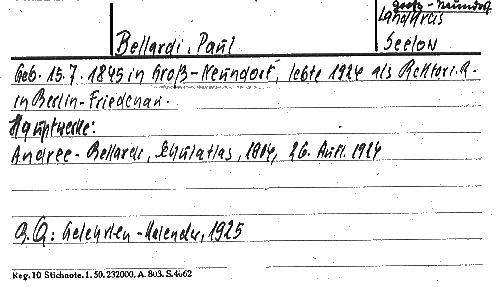 Groß-Neundorf
Landkreis
Bellardi, Paul
Seelow
Geb. 15.7.1845 in Groß-Neundorf, lebte 1924 als Rektor i.R.
in Berlin-Friedenau.
Hauptwerke:
Andree-Bellardi, Schulatlas, 1804, 26. Aufl. 1924
B.Q: Gelehrten-Kalender, 1925
Reg. 10 Stichnote. 1. 50. 232000. A. 803. S. 4662